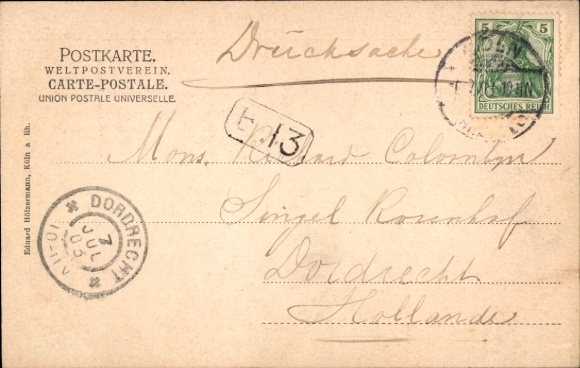 POSTKARTE.
WELTPOSTVEREIN.
CARTE-POSTALE.
UNION POSTALE UNIVERSELLE.
Drucksache
5 5
DEUTSCHES REICH
13
Mons. Colombyn
Singel Rosenhof
Dordrecht
Hollande
DORDRECHT
7
JUL
Eduard Hölzermann, Köln a Rh.